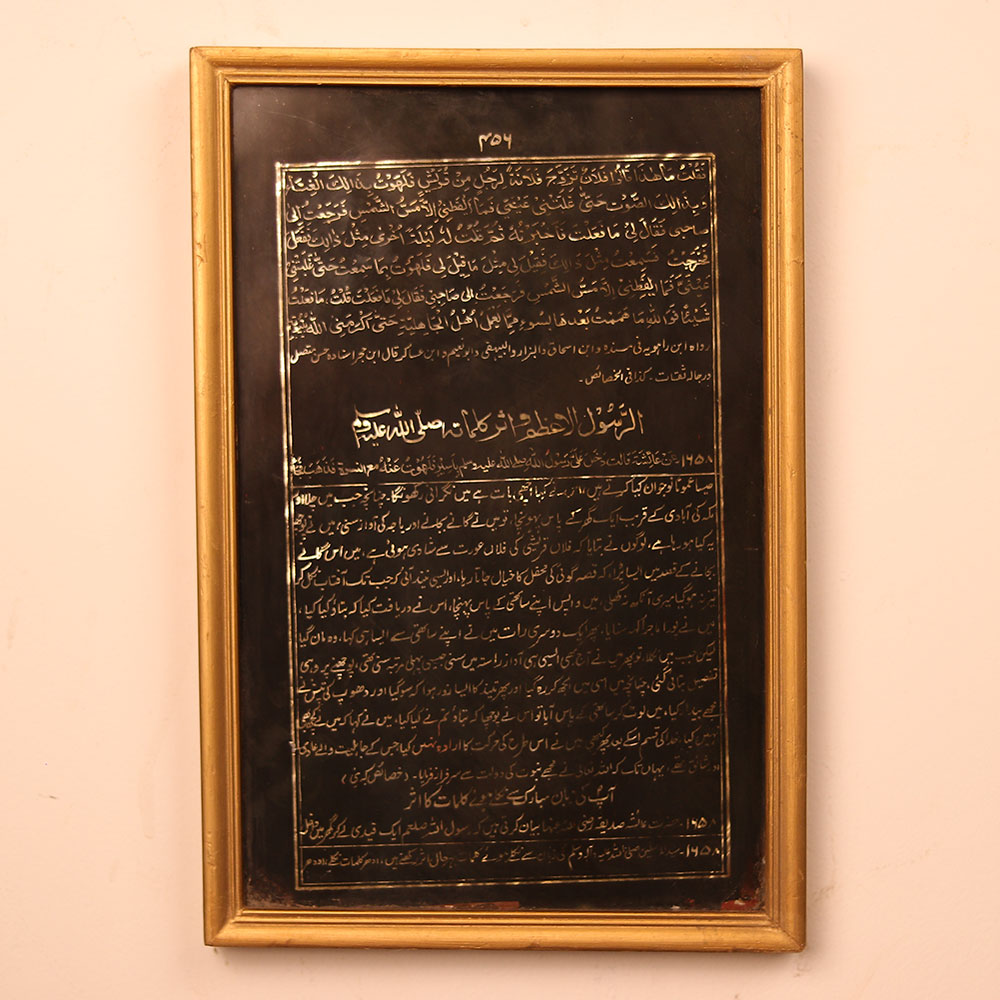 ۴۵۶
فَقُلْتُ مَا هٰذَا قَالُوْا فُلَانٌ تَزَوَّجَ فُلَانَةً لِرَجُلٍ مِنْ قُرَيْشٍ فَلَهَوْتُ بِذَالِكَ الْغِنَاءِ
وَبِذَالِكَ الصَّوْتِ حَتّٰى غَلَبَتْنِىْ عَيْنِىْ فَمَا اَيْقَظَنِىْ اِلَّا مَسُّ الشَّمْسِ فَرَجَعْتُ اِلٰى
صاحبى فَقَالَ لِىْ مَا فَعَلْتَ فَاَخْبَرْتُهُ ثُمَّ فَعَلْتُ لَهُ لَيْلَةً اُخْرٰى مِثْلَ ذٰلِكَ فَفَعَلَ
فَخَرَجْتُ فَسَمِعْتُ مِثْلَ ذَالِكَ فَقِيْلَ لِى مِثْلَ مَا قِيْلَ لِى فَلَهَوْتُ بِمَا سَمِعْتُ حَتّٰى غَلَبَتْنِىْ
عَيْنِىْ فَمَا اَيْقَظَنِىْ اِلَّا مَسُّ الشَّمْسِ فَرَجَعْتُ اِلٰى صَاحِبِىْ فَقَالَ لِى مَا فَعَلْتَ قُلْتُ مَا فَعَلْتُ
شَيْئًا فَوَاللهِ مَا هَمَمْتُ بَعْدَهَا بِسُوْءٍ مِمَّا يَعْمَلُ اَهْلُ الْجَاهِلِيَّةِ حَتّٰى اَكْرَمَنِى اللهُ بِنُبُوَّتِهٖ
رواه ابن راهويه فى مسنده و ابن اسحاق و البزار و البيهقى و ابو نعيم و ابن عساكر قال ابن حجر اسناده حسن متصل
و رجاله ثقات ۔ كذا فى الخصائص ۔
الرَّسُوْلُ الاعظم و اثر كلماته صلّى الله عليه وسلم
۱۶۵۸ عن عائشة قالت دخل علىّ رسول الله صلى الله عليه وسلم باسير فلهوت عنه مع النسوة فذهب
جیسا عموماً نوجوان کیا کرتے ہیں، اس نے کہا اچھی بات ہے میں نگرانی رکھونگا۔ چنانچہ جب میں چلا اور
مکہ کی آبادی کے قریب ایک گھر کے پاس پہونچا، تو میں نے گانے بجانے اور باجہ کی آواز سنی، میں نے پوچھا
یہ کیا ہو رہا ہے، لوگوں نے بتایا کہ فلاں قریشی کی فلاں عورت سے شادی ہوئی ہے، میں اس گانے
بجانے کے قصد میں ایسا پڑا، کہ قصہ گوئی کی محفل کا خیال جاتا رہا، اور ایسی نیند آئی کہ جب تک آفتاب نکل کر
تیز نہ ہو گیا میری آنکھ نہ کھلی، میں واپس اپنے ساتھی کے پاس پہنچا، اس نے دریافت کیا کہ بتاؤ کیا کیا،
میں نے پورا ماجرا کہہ سنایا، پھر ایک دوسری رات میں نے اپنے ساتھی سے ایسا ہی کہا، وہ مان گیا
لیکن جب میں نکلا، تو پھر میں نے آج بھی ایسی ہی آواز راستہ میں سنی جیسی پہلی مرتبہ سنی تھی، پوچھنے پر وہی
تفصیل بتائی گئی، چنانچہ میں اسی میں الجھ کر رہ گیا اور پھر نیند کا ایسا زور ہوا کہ سو گیا اور دھوپ کی تپش نے
مجھے بیدار کیا، میں لوٹ کر ساتھی کے پاس آیا تو اس نے پوچھا کہ بتاؤ تم نے کیا کیا، میں نے کہا کہ میں نے کچھ بھی
نہیں کیا، خدا کی قسم اسکے بعد پھر کبھی میں نے اس طرح کی حرکت کا ارادہ نہیں کیا جس کے جاہلیت والے عادی
و شائق تھے، یہاں تک کہ اللہ تعالیٰ نے مجھے نبوت کی دولت سے سرفراز فرمایا۔ (خصائص کبریٰ)
آپؐ کی زبان مبارک سے نکلے ہوئے کلمات کا اثر
۱۶۵۸۔ حضرت عائشہ صدیقہ رضی اللہ عنہا بیان کرتی ہیں کہ رسول اللہ صلعم ایک قیدی لے کر گھر میں داخل
۱۶۵۸۔ سید المرسلین صلی اللہ علیہ وآلہ وسلم کی زبان سے نکلے ہوئے کلمات بہرحال اثر رکھتے ہیں، ادھر کلمات نکلے